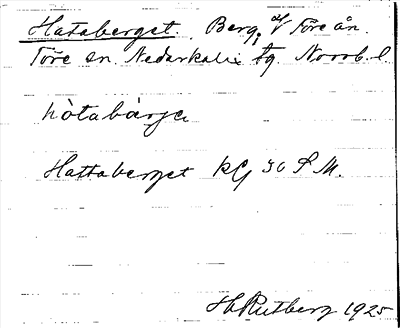 Hataberget. Berg, v/ Töre ån.
Töre sn. Nederkalix tg Norrb. l.
hòtabärje
Hattaberget kG 30 S M.
H Rutberg 1925